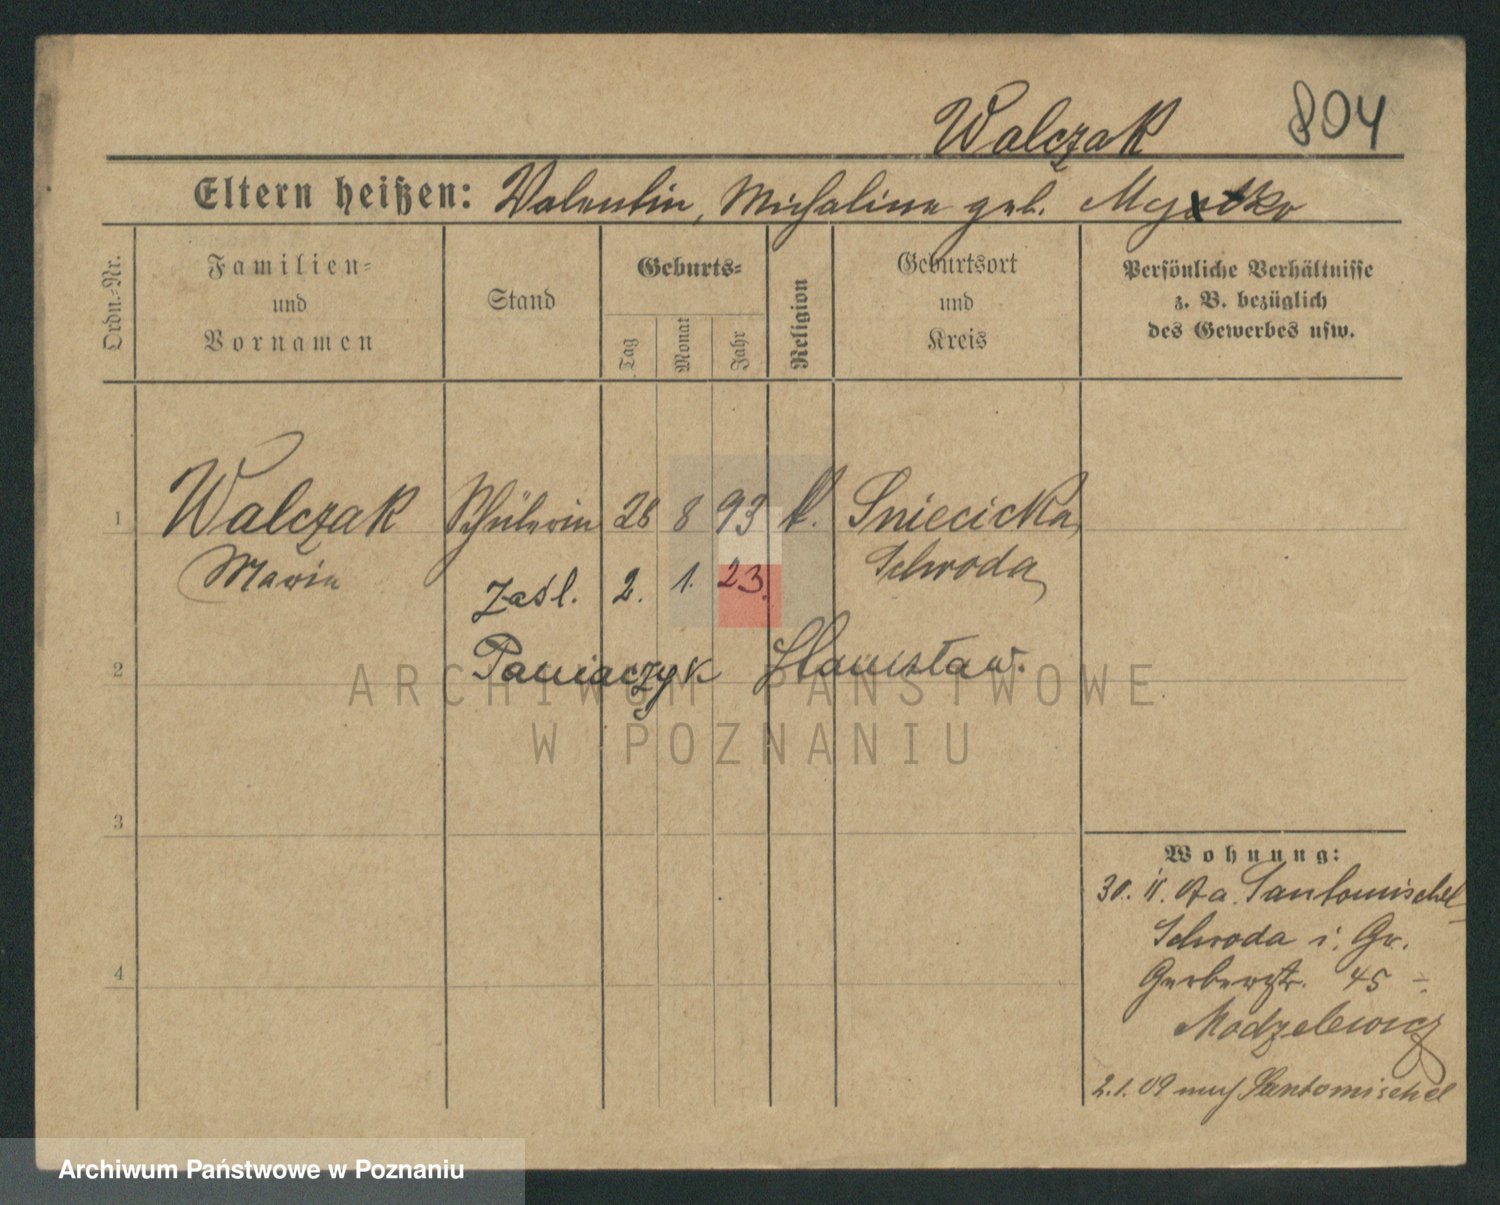 Walczak 804
Eltern heißen: Valentin, Michaline geb.
Ordn.-Nr.
Familien-
und
Vornamen
Stand
Geburts-
Tag
Monat
Jahr
Religion
Geburtsort
und
Kreis
Persönliche Verhältnisse
z. B. bezüglich
des Gewerbes usw.
1 Walczak Schülerin 28 8 93 k. Sniecicka,
Maria Schroda
zaśl. 2. 1. 23.
2 Paniaczyk Stanisław.
ARCHIWUM PAŃSTWOWE
W POZNANIU
3
Wohnung:
30. a. Santomischel
Schroda i. Gr.
Gerberstr. 45 -
Modzelewicz
4
2.1.09 nach Santomischel
Archiwum Państwowe w Poznaniu